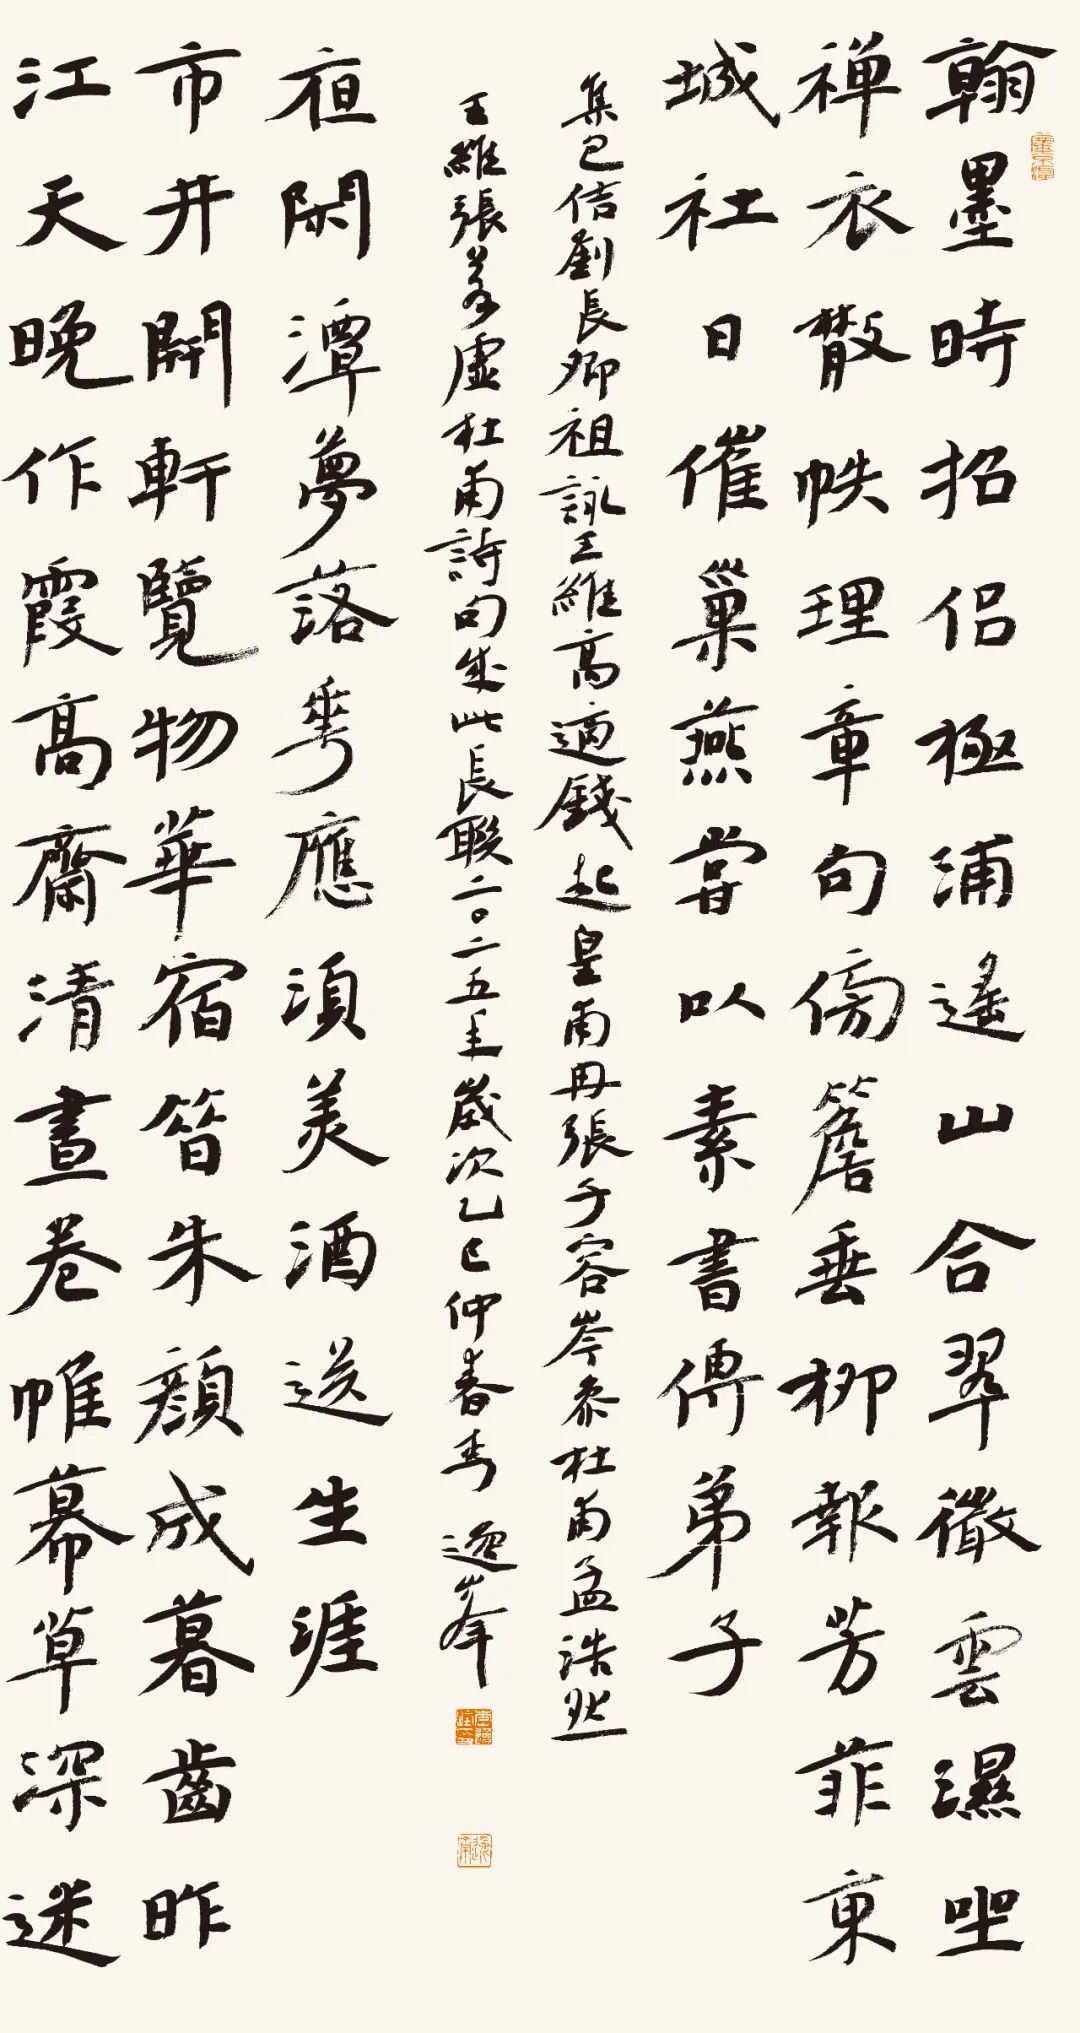 翰墨時招侶極浦遙山合翠微雲濕坐
禅衣散帙理章句傍簷垂柳報芳菲東
城社日催巢燕嘗以素書傳弟子
江天晚作霞高齋清晝卷帷幕草深迷
市井開軒覽物華宿昔朱顏成暮齒昨
夜閑潭夢落花應須美酒送生涯
集包佶劉長卿祖詠王維高適錢起皇甫冉張子容岑參杜甫孟浩然
王維張若虛杜甫詩句成此長聯二〇二五年歲次乙巳仲春李逸峯